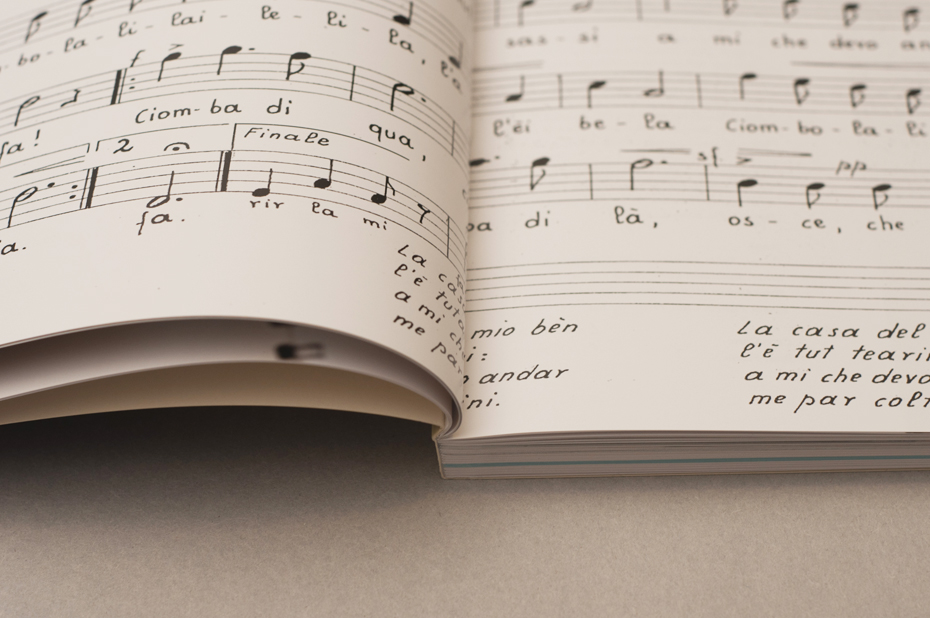 bo - la - li - lai - le - li - la, l'a
fa!
Ciom - ba di qua,
2
Finale
fa.
rir la mi
La cas
l'ē tut
a mi ch
me par
sas - si a mi che devo an
l'ēi be - la Ciom - bo - la - li
sf
pp
di là, os - ce, che
mio bèn
i:
andar
ini.
La casa del
l'ē tut tearin
a mi che devo
me par colt